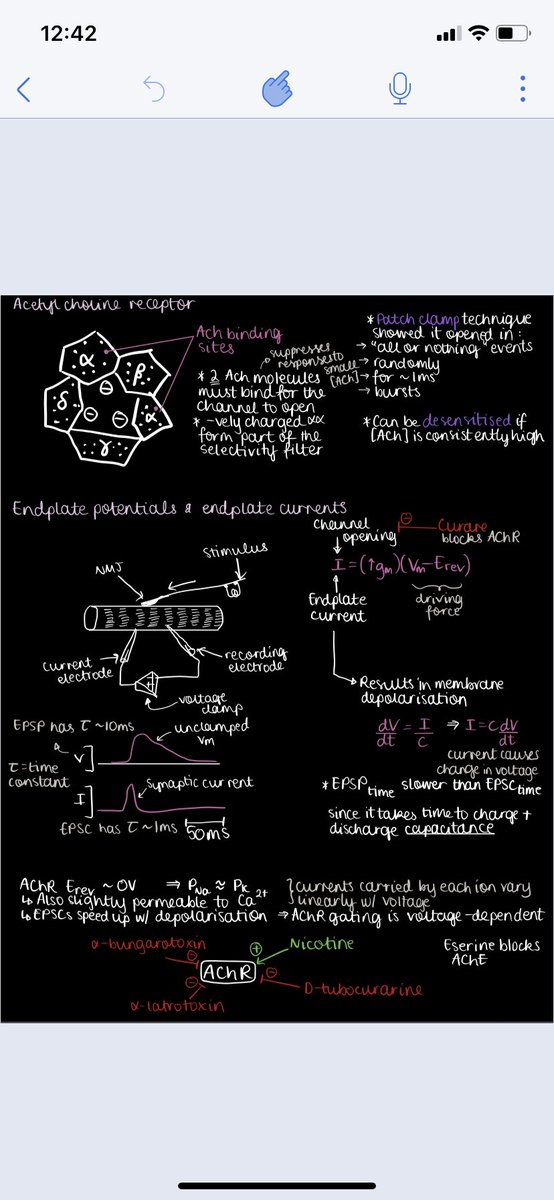 12:42
Acetyl choline receptor
α
β
δ
α
γ
Ach binding
sites
suppresses
response to
small
[ACh]
* 2 Ach molecules
must bind for the
channel to open
* -vely charged αα
form part of the
selectivity filter
* Patch clamp technique
showed it opened in:
→ "all or nothing" events
→ randomly
→ for ~1ms
→ bursts
* Can be desensitised if
[ACh] is consistently high
Endplate potentials & endplate currents
NMJ
stimulus
current
electrode
recording
electrode
voltage
clamp
channel
opening
Curare
blocks AChR
I=(↑gm)(Vm-Erev)
Endplate
current
driving
force
→ Results in membrane
depolarisation
dV/dt = I/C ⇒ I=C dV/dt
current causes
change in voltage
EPSP has τ ~10ms
τ=time
constant
V
unclamped
Vm
I
synaptic current
EPSC has τ ~1ms
50ms
* EPSP time slower than EPSC time
since it takes time to charge +
discharge capacitance
AChR Erev ~ 0V ⇒ PNa ≈ PK
↳ Also slightly permeable to Ca2+
↳ EPSCs speed up w/ depolarisation ⇒ AChR gating is voltage-dependent
} currents carried by each ion vary
linearly w/ voltage
α-bungarotoxin
Nicotine
AChR
α-latrotoxin
D-tubocurarine
Eserine blocks
AChE